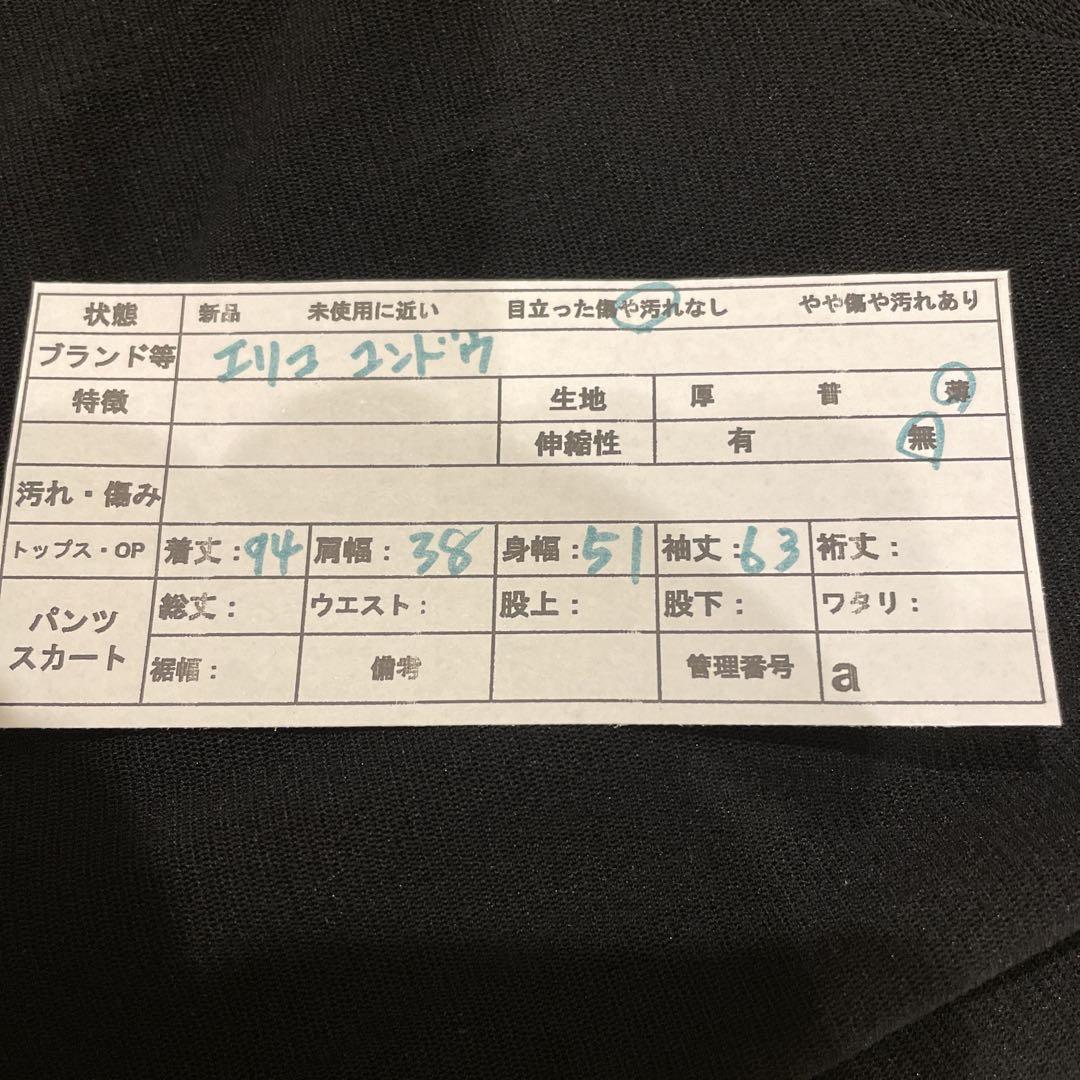 状態 新品 未使用に近い 目立った傷や汚れなし やや傷や汚れあり
ブランド等 エリコ コンドウ
特徴 生地 厚 普 薄
伸縮性 有 無
汚れ・傷み
トップス・OP 着丈:94 肩幅:38 身幅:51 袖丈:63 裄丈:
パンツ スカート 総丈: ウエスト: 股上: 股下: ワタリ:
裾幅: 備考 管理番号 a